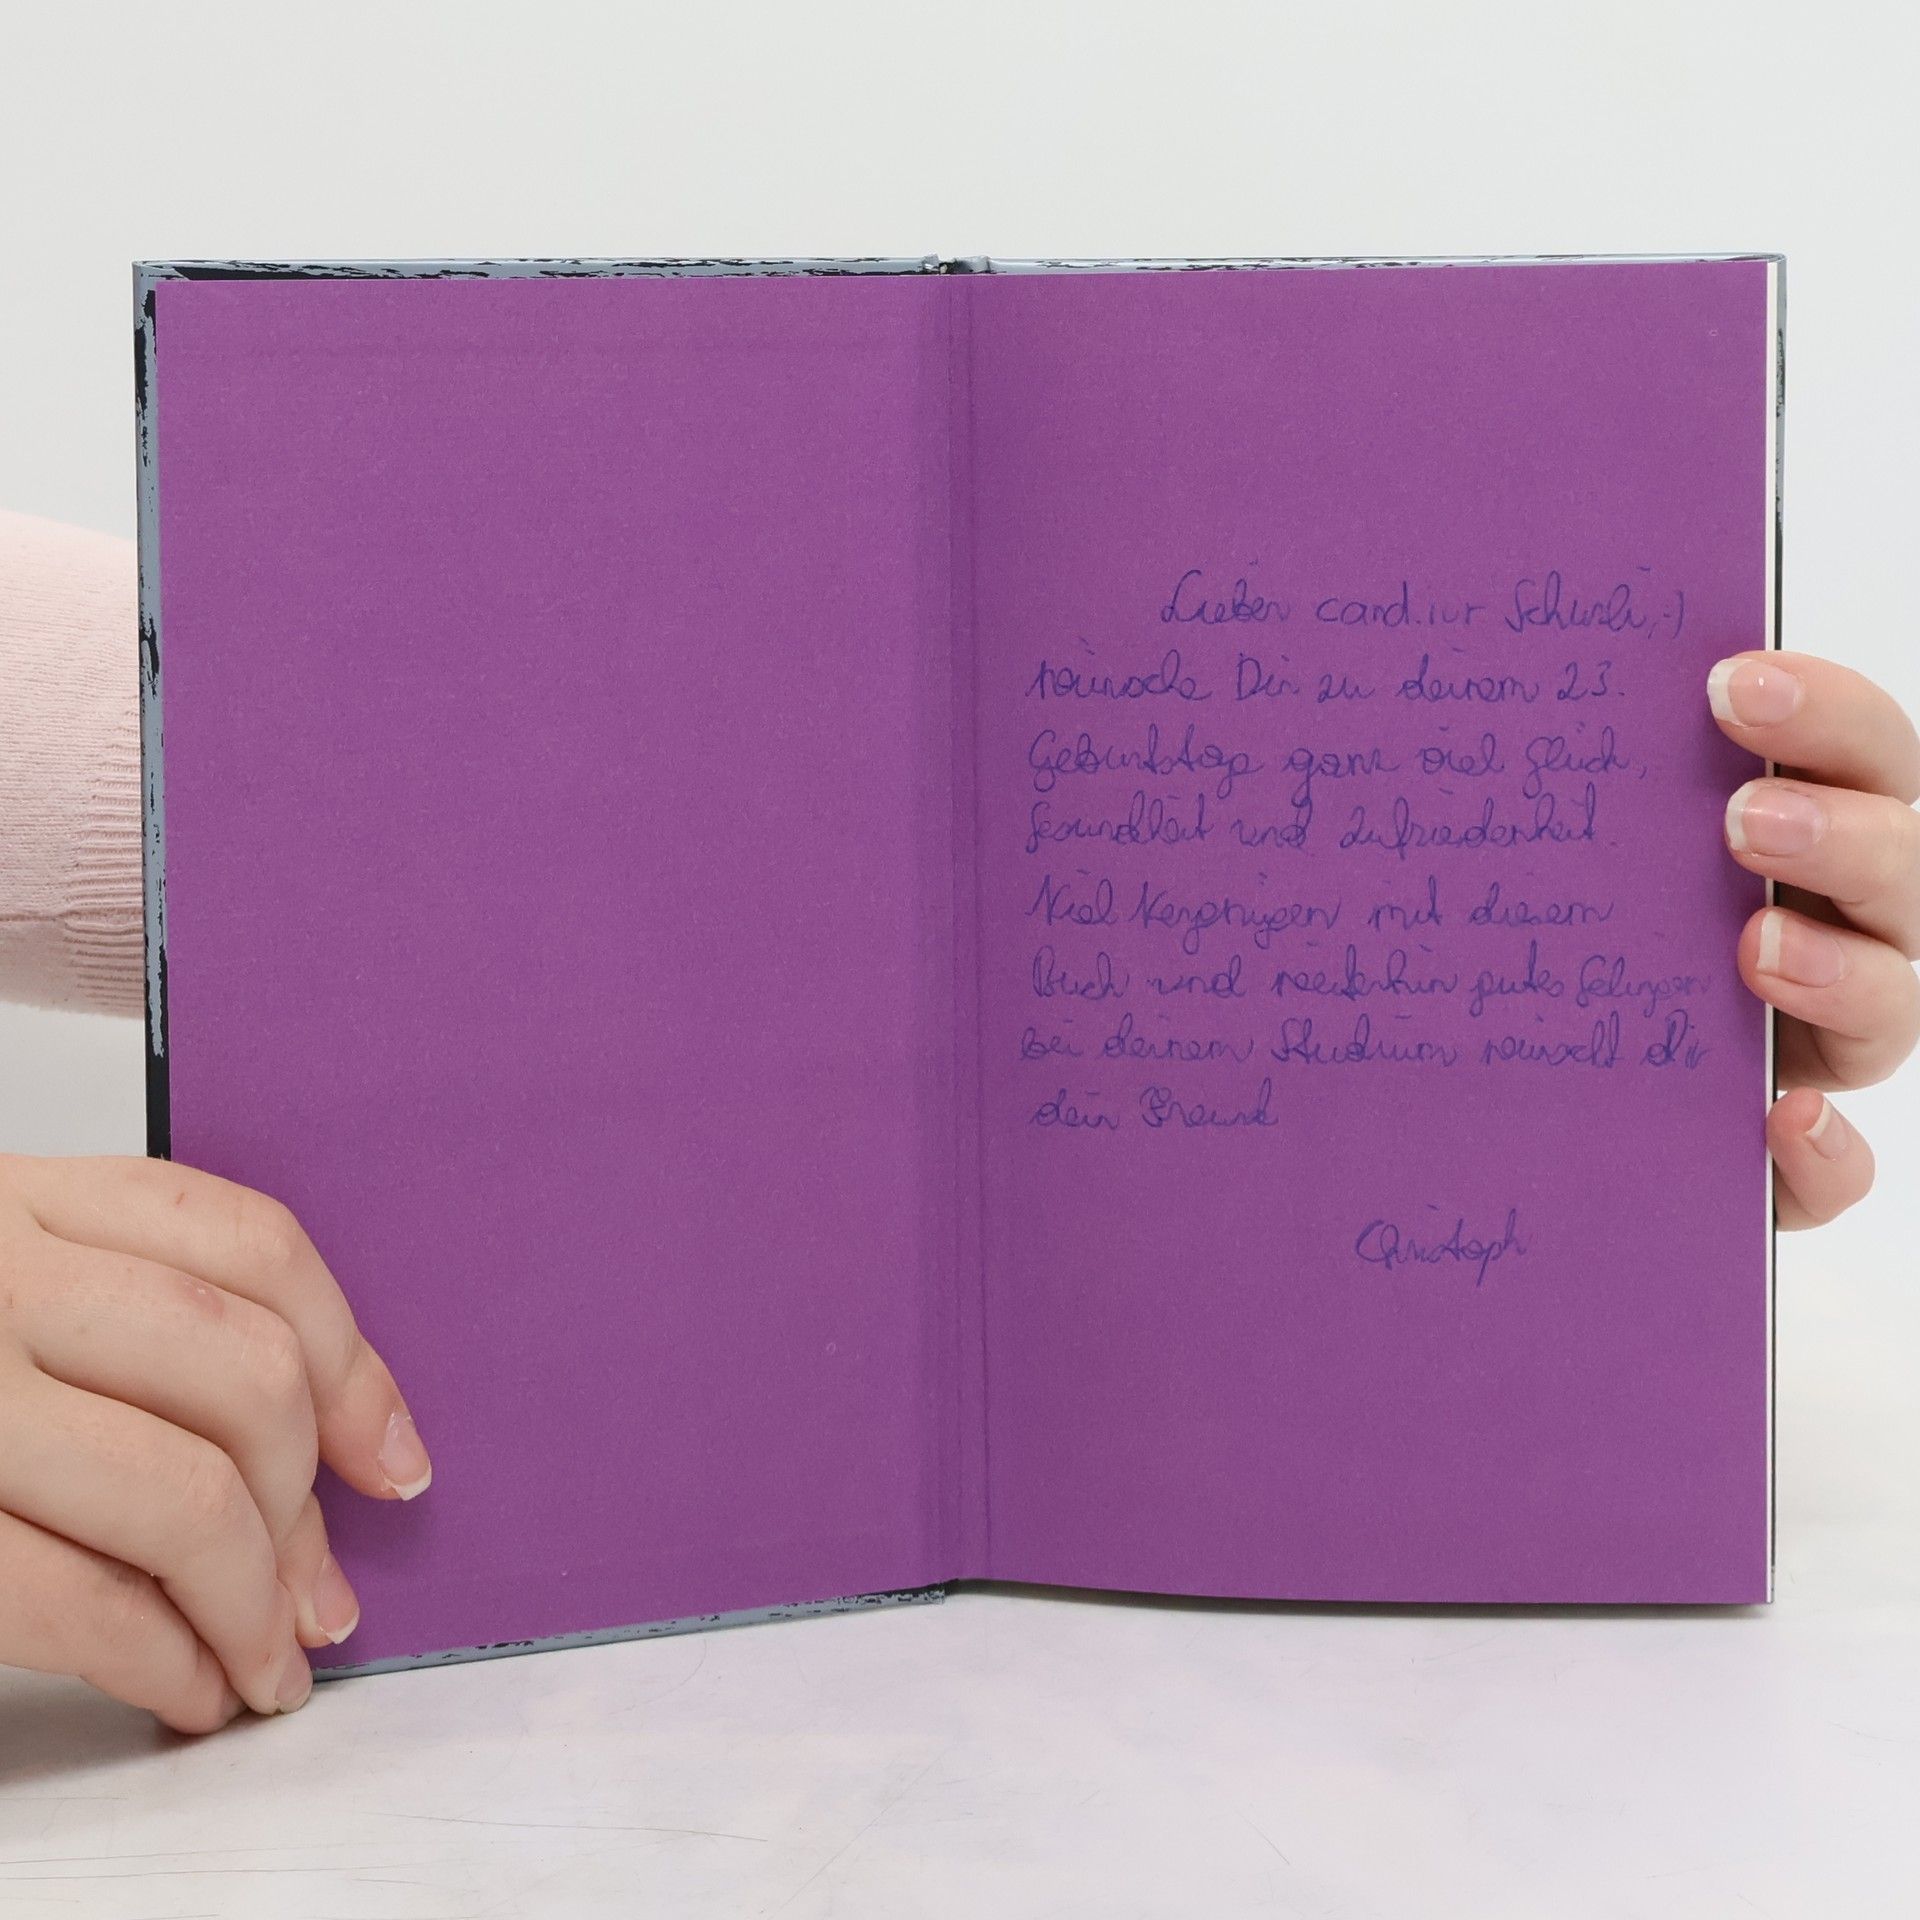 Lieber cand.iur Schurli,:-)
wünsche Dir zu deinem 23.
Geburtstag ganz viel Glück,
Gesundheit und Zufriedenheit.
Viel Vergnügen mit diesem
Buch und weiterhin gutes Gelingen
bei deinem Studium wünscht dir
dein Freund
Christoph